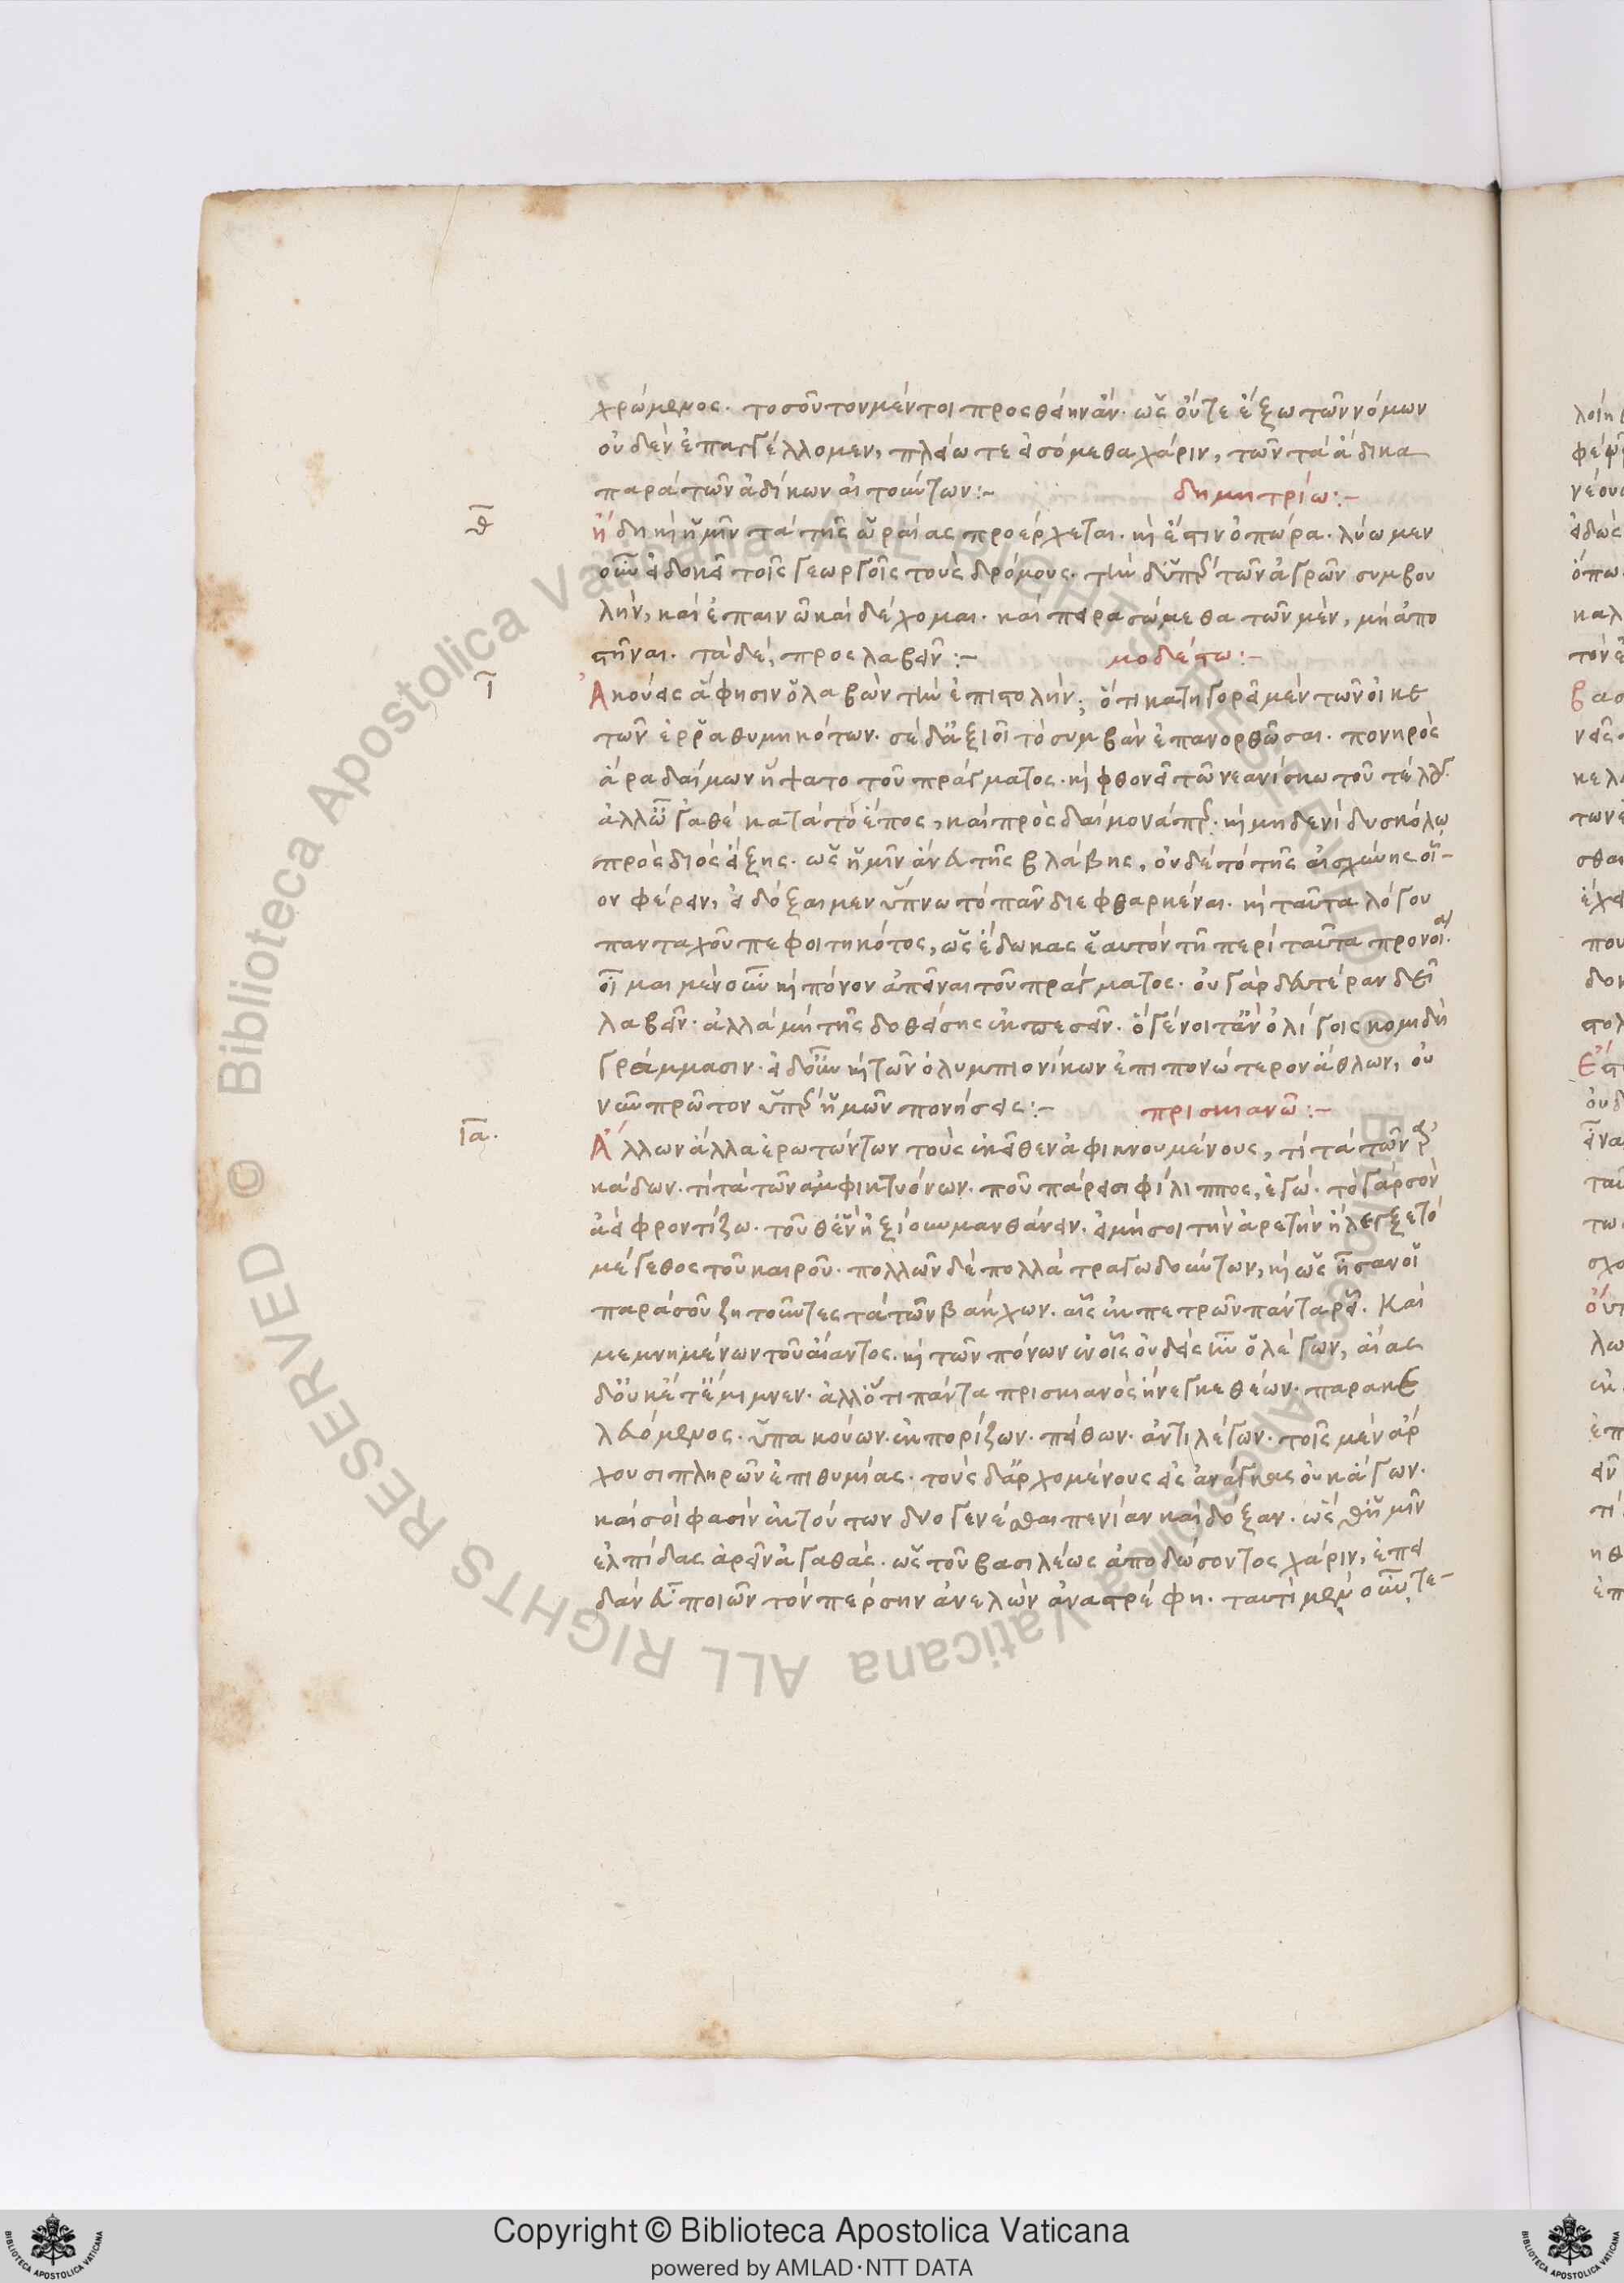 χρώμενος. τοσοῦτον μέντοι προσθείην ἄν. ὡς οὔτε ἔξω τῶν νόμων
οὐδὲν ἐπαγγέλλομεν, πλείω τε εἰσόμεθα χάριν, τῶν τὰ ἄδικα
παρὰ τῶν ἀδίκων αἰτούντων:-
δημητρίω:-
θ
ἤδη κὴ ἡμῖν τὰ τῆς ὡραίας προέρχεται. κὴ ἔστιν ὀπώρα. λύωμεν
οὖν εἰ δοκεῖ τοῖς γεωργοῖς τοὺς δρόμους. τὴν δ' ὑπὲρ τῶν ἀγρῶν συμβου
λὴν, καὶ ἐπαινῶ καὶ δέχομαι. καὶ πειρασώμεθα τῶν μὲν, μὴ ἀπο
στῆναι. τὰ δέ, προσλαβεῖν:-
μοδέστω:-
ι
Ἀκούεις ἅ φησιν ὁ λαβὼν τὴν ἐπιστολήν; ὅτι κατηγορεῖ μὲν τῶν οἰκε
τῶν ἐρραθυμηκότων. σὲ δ' ἀξιοῖ τὸ συμβὰν ἐπανορθῶσαι. πονηρὸς
ἄρα δαίμων ἥψατο τοῦ πράγματος. κὴ φθονεῖ τῶ νεανίσκω τοῦ τέλους.
ἀλλ' ὦ γαθὲ κατὰ τὸ ἔπος, καὶ πρὸς δαίμονά περ. κὴ μηδενὶ δυσκόλω
πρὸς διὸς εἴξης. ὡς ἡμῖν ἄνευ τῆς βλάβης, οὐδὲ τὸ τῆς αἰσχύνης οἷ-
ον φέρειν, εἰ δόξαιμεν ὕπνω τὸ πᾶν διεφθαρκέναι. κὴ ταῦτα λόγου
πανταχοῦ πεφοιτηκότος, ὡς ἔδωκας ἑαυτὸν τῆ περὶ ταῦτα προνοία.
οἶμαι μὲν οὖν κὴ πόνον ἀπεῖναι τοῦ πράγματος. οὐ γὰρ δευτέραν δεῖ
λαβεῖν. ἀλλὰ μὴ τῆς δοθείσης ἐκπεσεῖν. ὃ γένοιτ' ἂν ὀλίγοις κομιδῆ
γράμμασιν. εἰ δ' οὖν κὴ τῶν ὀλυμπιονίκων ἐπιπονώτερον ἄθλων, οὐ
νῦν πρῶτον ὑπὲρ ἡμῶν πονήσεις:-
πρισκιανῶ:-
ια.
Ἄλλων ἄλλα ἐρωτώντων τοὺς ἐκεῖθεν ἀφικνουμένους, τί τὰ τῶν ἀρ
κάδων. τί τὰ τῶν ἀμφικτυόνων. ποῦ πάρεισι φίλιππος, ἐγώ. τὸ γὰρ σὸν
ἀεὶ φροντίζω. τοῦθ' ἓν ἠξίουν μανθάνειν. εἰ μή σοι τὴν ἀρετὴν ἤλεγξε τὸ
μέγεθος τοῦ καιροῦ. πολλῶν δὲ πολλὰ τραγωδούντων, κὴ ὡς ἦσαν οἱ
παρὰ σοῦ ζητοῦντες τὰ τῶν βάκχων. αἷς ἐκ πετρῶν πάντα ῥεῖ. Καὶ
μεμνημένων τοῦ αἴαντος. κὴ τῶν πόνων ἐν οἷς οὐδεὶς ἦν ὁ λέγων, αἴας
δ' οὐκέτ' ἔμιμνεν. ἀλλ' ὅτι πάντα πρισκιανὸς ἤνεγκε θέων. παρακε
λευόμενος. ὑπακούων. ἐκπορίζων. πείθων. ἀντιλέγων. τοῖς μὲν ἄρ
χουσι πληρῶν ἐπιθυμίας. τοὺς δ' ἀρχομένους εἰς ἀνάγκας οὐκ ἄγων.
καὶ σοί φασὶν ἐκ τούτων δύο γενέσθαι πενίαν καὶ δόξαν. ὡς θ' ἡμῖν
ἐλπίδας ἀρεῖν ἀγαθάς. ὡς τοῦ βασιλέως ἀποδώσοντος χάριν, ἐπει
δὰν εὖ ποιῶν τὸν πέρσην ἀνελὼν ἀναστρέφη. ταυτὶ μὲν οὖν τε-
Copyright © Biblioteca Apostolica Vaticana
powered by AMLAD·NTT DATA